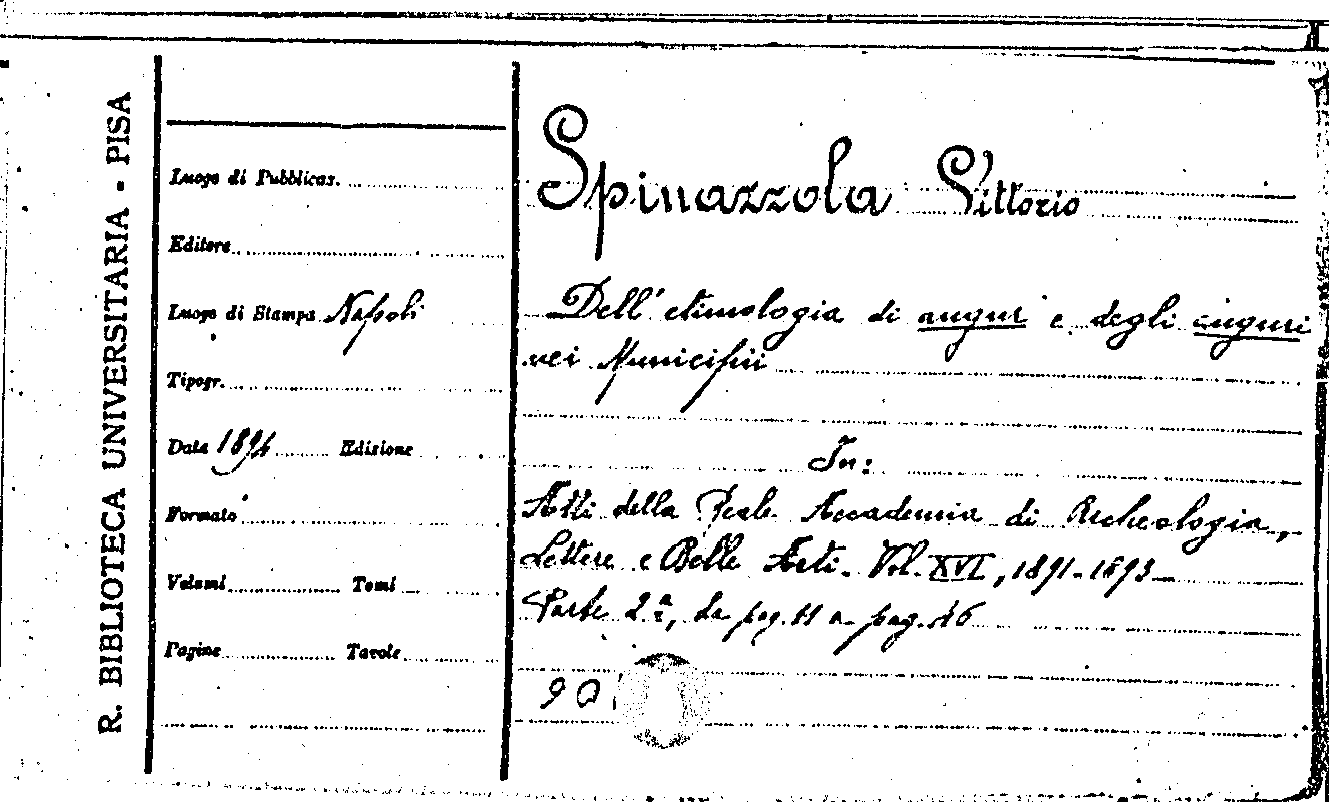 R. BIBLIOTECA UNIVERSITARIA - PISA
Luogo di Pubblicaz.
Editore
Luogo di Stampa Napoli
Tipogr.
Data 1894 Edizione
Formato
Volumi Tomi
Pagine Tavole
Spinazzola Vittorio
Dell'etimologia di augur e degli auguri
nei Municipii
In:
Atti della Reale Accademia di Archeologia,
Lettere e Belle Arti. Vol. XVI, 1891-1893
Parte 2ª, da pag. 11 a pag. 16